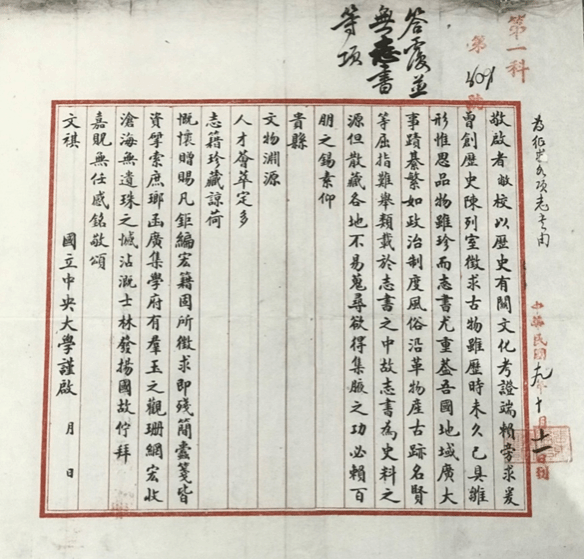 第一科
第1609號
答覆並
無志書
等項
為征求各項志書由
中華民國十九年十月十一日到
敬啟者敝校以歷史有關文化考證端賴旁求爰
曾創歷史陳列室徵求古物雖歷時未久已具雛
形惟思品物雖珍而志書尤重蓋吾國地域廣大
事蹟綦繁如政治制度風俗沿革物產古跡名賢
等屈指難舉類載於志書之中故志書為史料之
源但散藏各地不易蒐尋欲得集腋之功必賴百
朋之錫素仰
貴縣
文物淵源
人才薈萃定多
志籍珍藏諒荷
慨懷贈賜凡鉅編宏籍固所徵求即殘簡蠹箋皆
資摩索庶瑯函廣集學府有羣玉之觀珊網宏收
滄海無遺珠之憾沾溉士林發揚國故佇拜
嘉貺無任感銘敬頌
文祺
國立中央大學謹啟 月 日